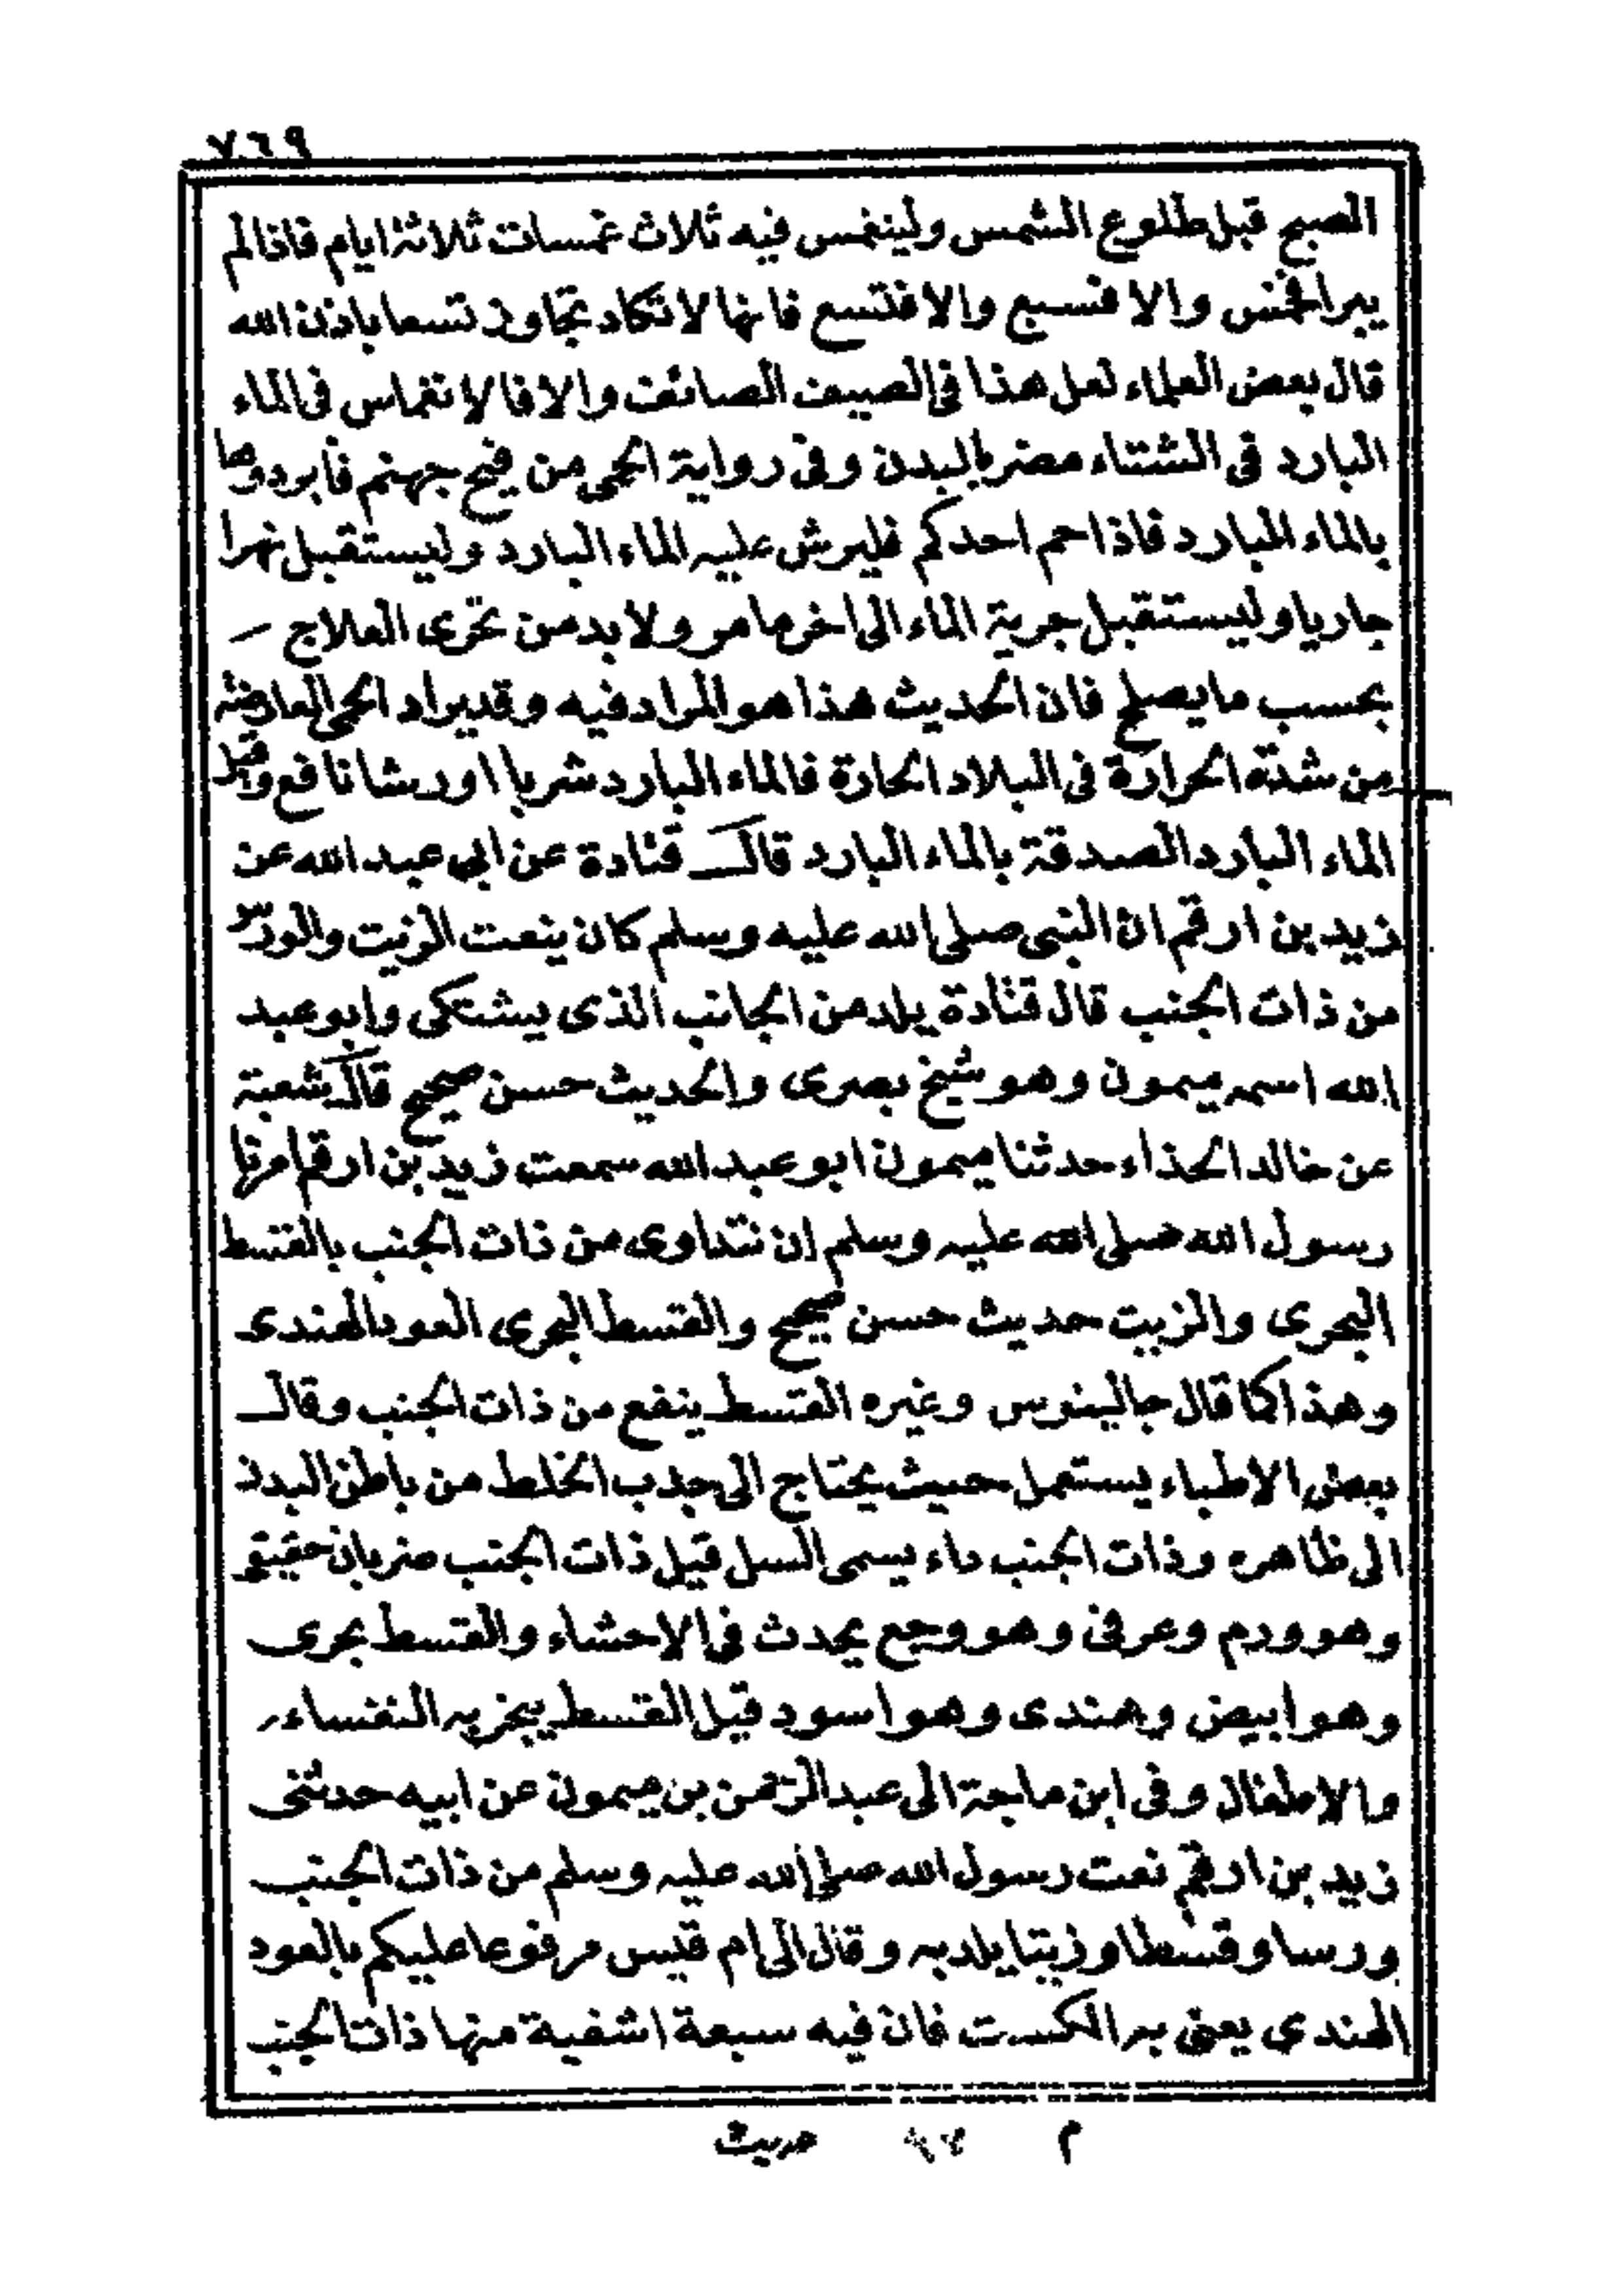 ٧٦٩
الصبح قبل طلوع الشمس ولينغمس فيه ثلاث غمسات ثلاثة ايام فاذا لم
يبرا فخمس والا فسبع والا فتسع فانها لا تكاد تجاوز تسعا باذن الله
قال بعض العلماء لعل هذا فى الصيف الصائف والا فالانغماس فى الماء
البارد فى الشتاء مضر بالبدن وفى رواية الحمى من فيح جهنم فأبردوها
بالماء البارد فاذا حم احدكم فليرش عليه الماء البارد وليستقبل نهرا
جاريا وليستقبل جرية الماء الى اخر ما مر ولا بد من تحرى العلاج
بحسب ما يصلح فان الحديث هذا هو المراد فيه وقد يراد الحمى العارضة
من شدة الحرارة فى البلاد الحارة فالماء البارد شربا او رشا نافع وقيل
الماء البارد الصدقة بالماء البارد قال قتادة عن ابى عبد الله عن
زيد بن ارقم ان النبى صلى الله عليه وسلم كان ينعت الزيت والورس
من ذات الجنب قال قتادة يلد من الجانب الذى يشتكى وابو عبد
الله اسمه ميمون وهو شيخ بصرى والحديث حسن صحيح قال شعبة
عن خالد الحذاء حدثنا ميمون ابو عبد الله سمعت زيد بن ارقم امرنا
رسول الله صلى الله عليه وسلم ان نتداوى من ذات الجنب بالقسط
البحرى والزيت حديث حسن صحيح والقسط البحرى العود الهندى
وهذا كما قال جالينوس وغيره القسط ينفع من ذات الجنب وقال
بعض الاطباء يستعمل حيث يحتاج الى جذب الخلط من باطن البدن
الى ظاهره وذات الجنب داء يسمى السل قيل ذات الجنب ضربان حقيقى
وهو ورم وعرفى وهو وجع يحدث فى الاحشاء والقسط بحرى
وهو ابيض وهندى وهو اسود قيل القسط يبخر به النفساء
والاطفال وفى ابن ماجة الى عبد الرحمن بن ميمون عن ابيه حدثنى
زيد بن ارقم نعت رسول الله صلى الله عليه وسلم من ذات الجنب
ورسا وقسطا وزيتا يلد به وقال الى ام قيس مرفوعا عليكم بالعود
الهندى يعنى به الكست فان فيه سبعة اشفية منها ذات الجنب
م ٩٧ حديث